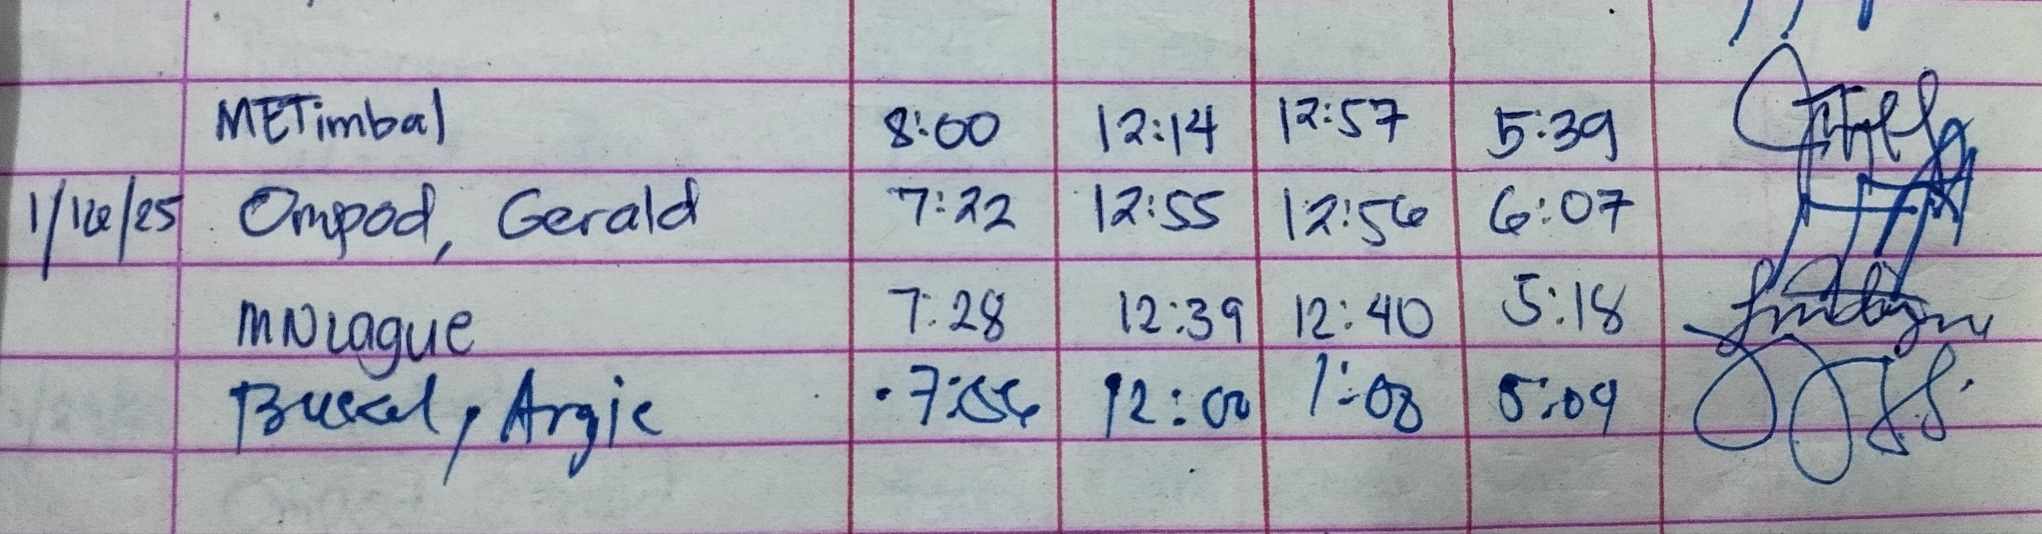 METimbal 8:00 12:14 12:57 5:39
1/16/25 Ompod, Gerald 7:22 12:55 12:56 6:07
MNLague 7:28 12:39 12:40 5:18
Argie 12:00 1:08 5:09